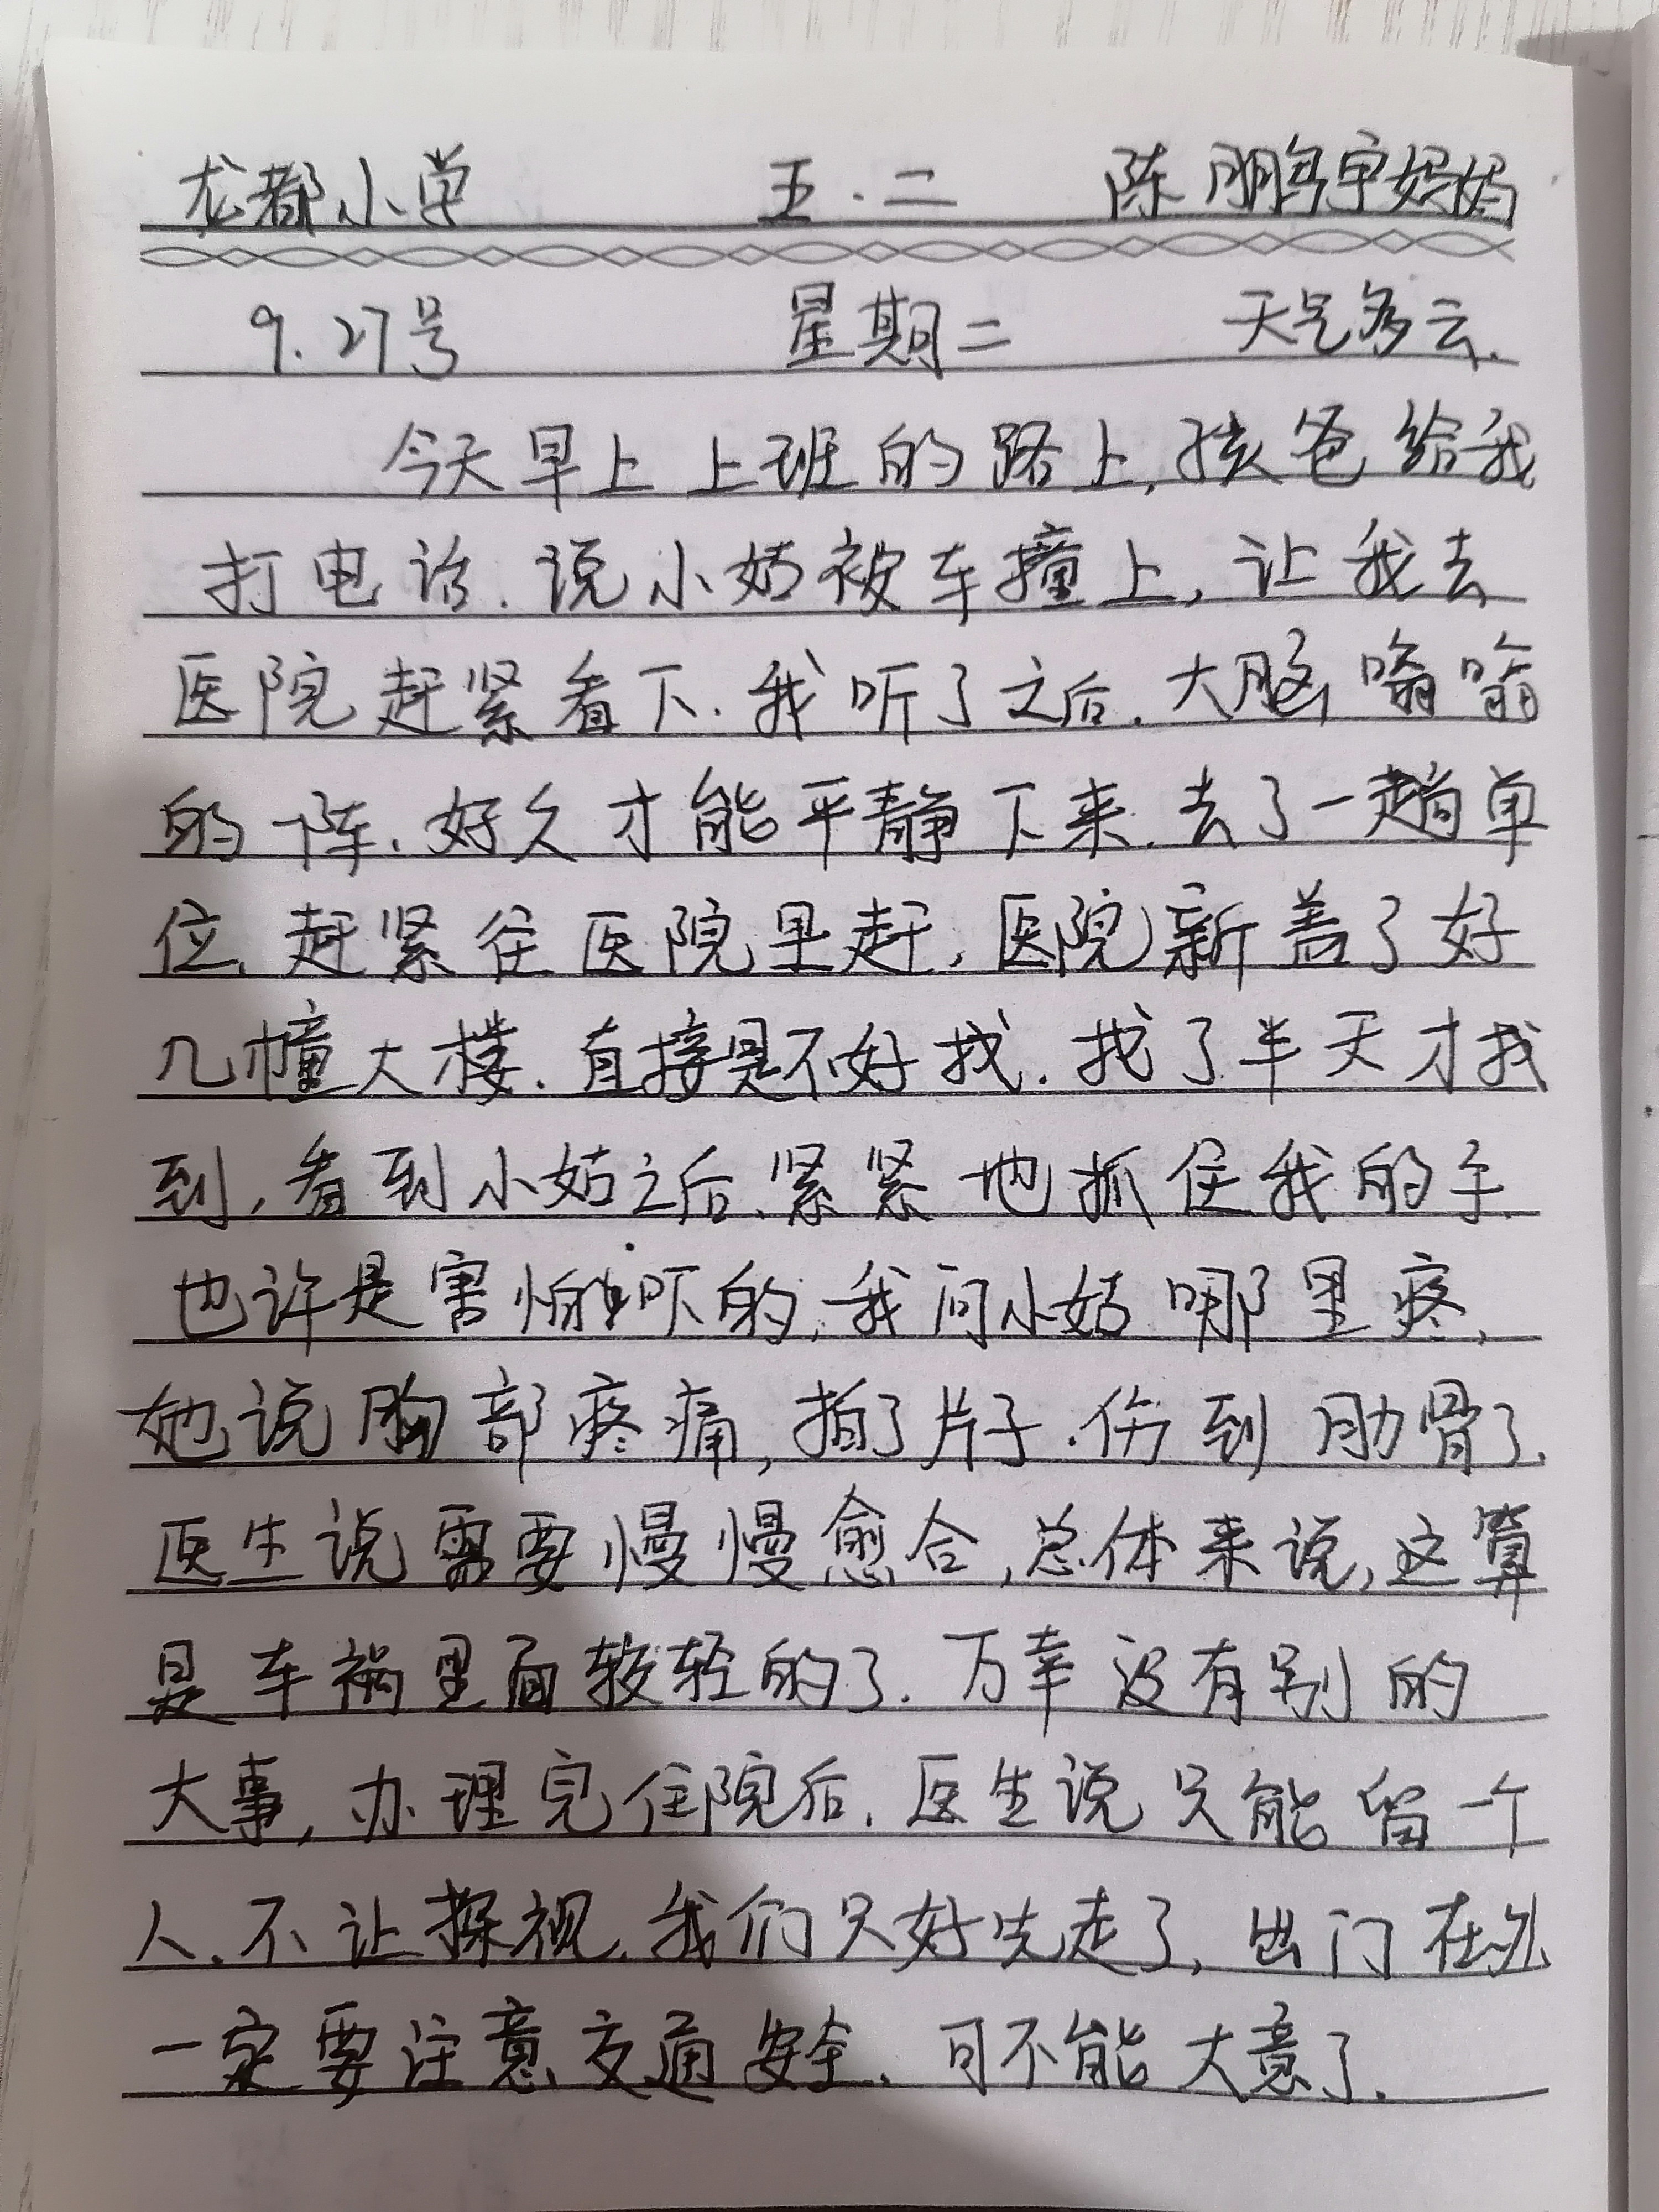 龙都小学 五.二 陈鹏宇妈妈
9.27号 星期二 天气多云.
今天早上上班的路上,孩爸给我
打电话.说小姑被车撞上,让我去
医院赶紧看下.我听了之后.大脑嗡嗡
的一阵.好久才能平静下来.去了一趟单
位.赶紧往医院里赶,医院新盖了好
几幢大楼.直接是不好找.找了半天才找
到,看到小姑之后.紧紧地抓住我的手.
也许是害怕吓的,我问小姑哪里疼,
她说胸部疼痛,拍了片子.伤到肋骨了.
医生说需要慢慢愈合,总体来说,这算
是车祸里面较轻的了.万幸没有别的
大事,办理完住院后.医生说只能留一个
人.不让探视.我们只好先走了,出门在外
一定要注意交通安全.可不能大意了.